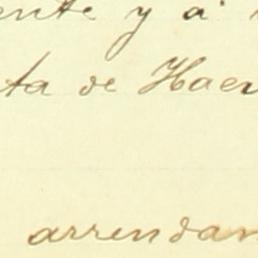 ente y á
ta de Hae
arrendam